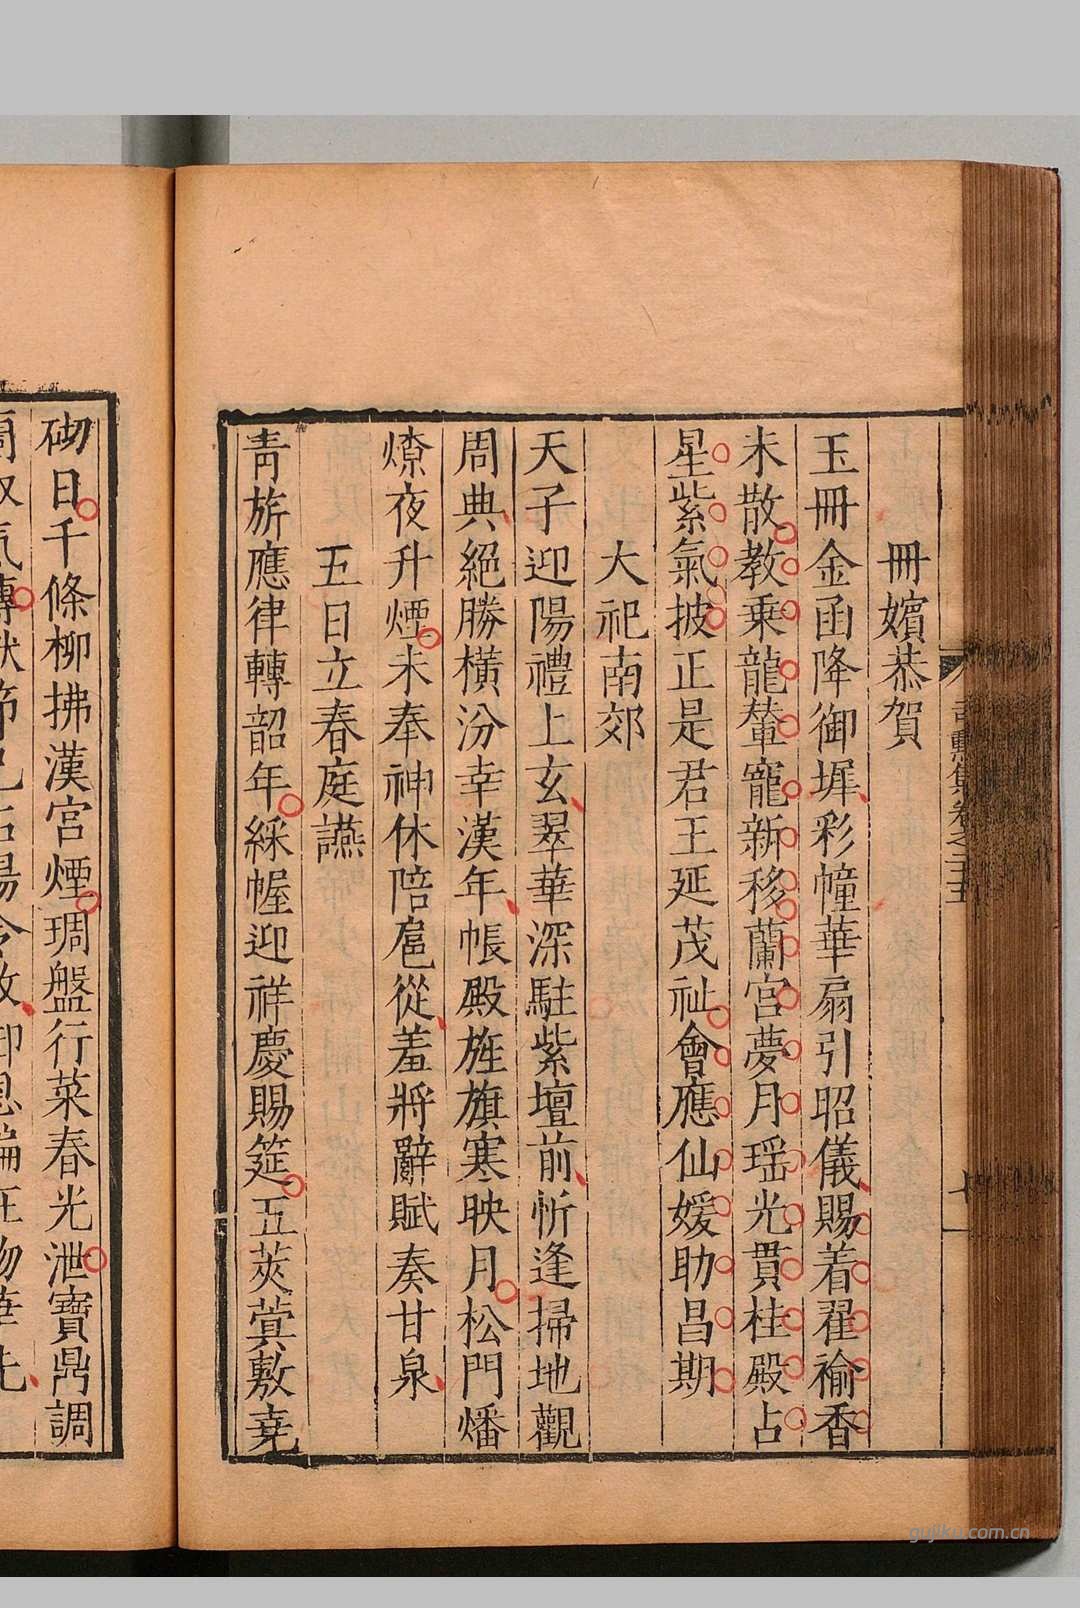 冊嬪恭賀
玉冊金函降御墀彩幢華扇引昭儀賜着翟褕香
未散教乗龍輦寵新移蘭宮夢月瑶光貫桂殿占
星紫氣披正是君王延茂祉會應仙媛助昌期
大祀南郊
天子迎陽禮上玄翠華深駐紫壇前忻逢掃地觀
周典絕勝橫汾幸漢年帳殿旌旗寒映月松門燔
燎夜升煙未奉神休陪扈從羞將辭賦奏甘泉
五日立春庭讌
青旂應律轉韶年綵幄迎祥慶賜筵五莢蓂敷堯
砌日千條柳拂漢宮煙琱盤行菜春光泄寶鼎調
gujiku.com.cn